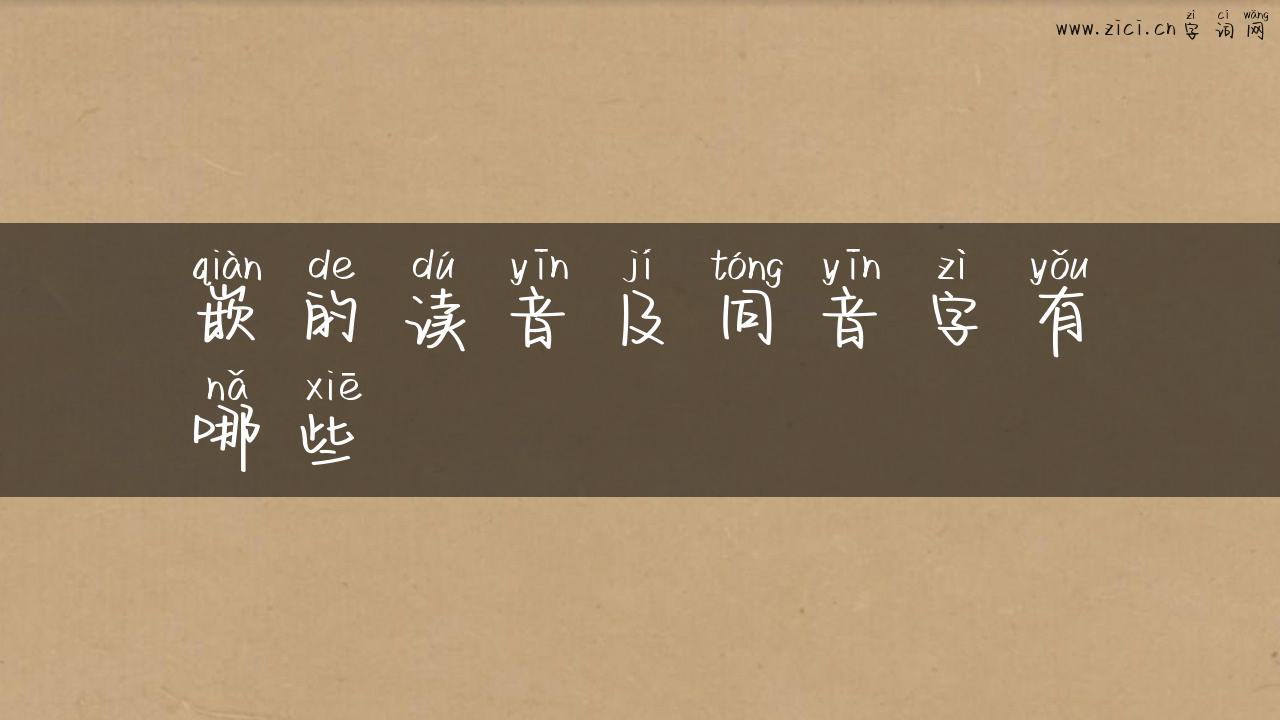 zì cí wǎng
www.zici.cn 字 词 网
qiàn de dú yīn jí tóng yīn zì yǒu
嵌 的 读 音 及 同 音 字 有
nǎ xiē
哪 些